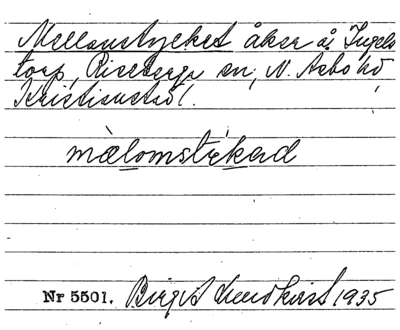 Mellanstycket åker å Ingels
torp, Riseberga sn, N. Åsbo hd
Kristianstad l.
mælomstykad
Nr 5501. Birgit Lundkvist 1935